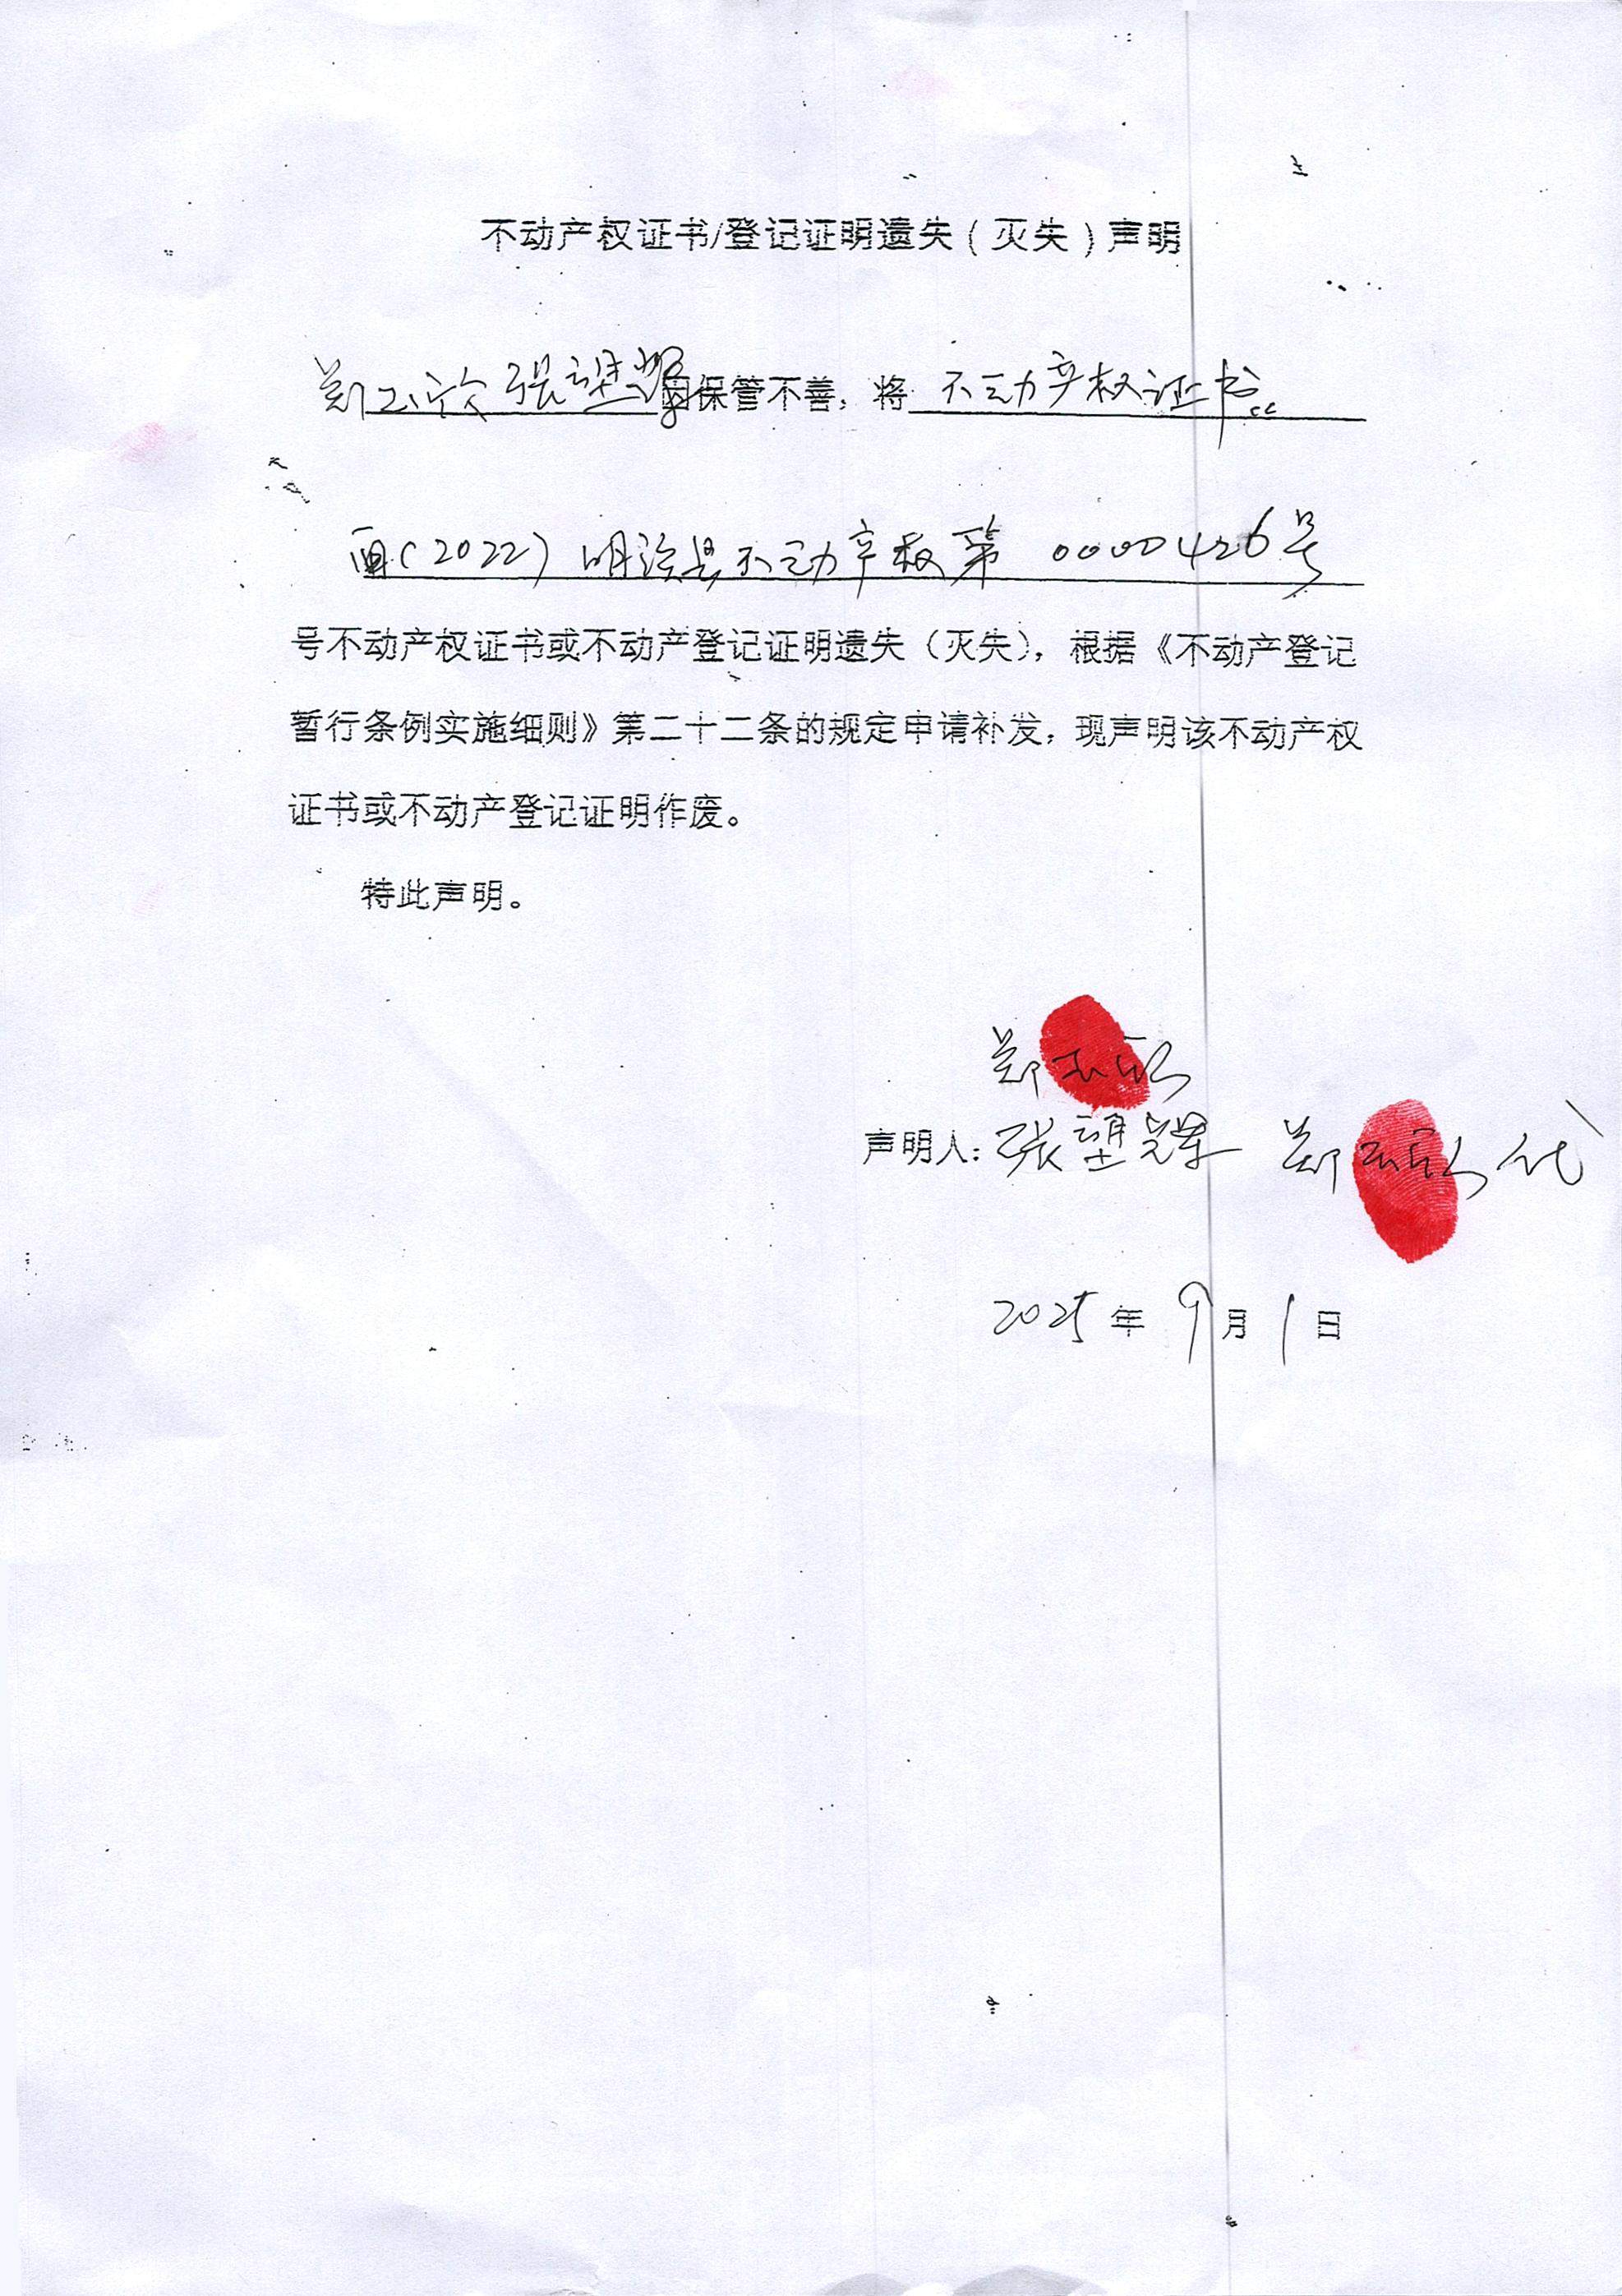 不动产权证书/登记证明遗失（灭失）声明
郑玉 张塱 因保管不善，将 不动产权证书。
(2022)明溪县不动产权第 0000426号
号不动产权证书或不动产登记证明遗失（灭失），根据《不动产登记
暂行条例实施细则》第二十二条的规定申请补发，现声明该不动产权
证书或不动产登记证明作废。
特此声明。
郑玉
声明人：张塱 郑玉 代
2025年9月1日